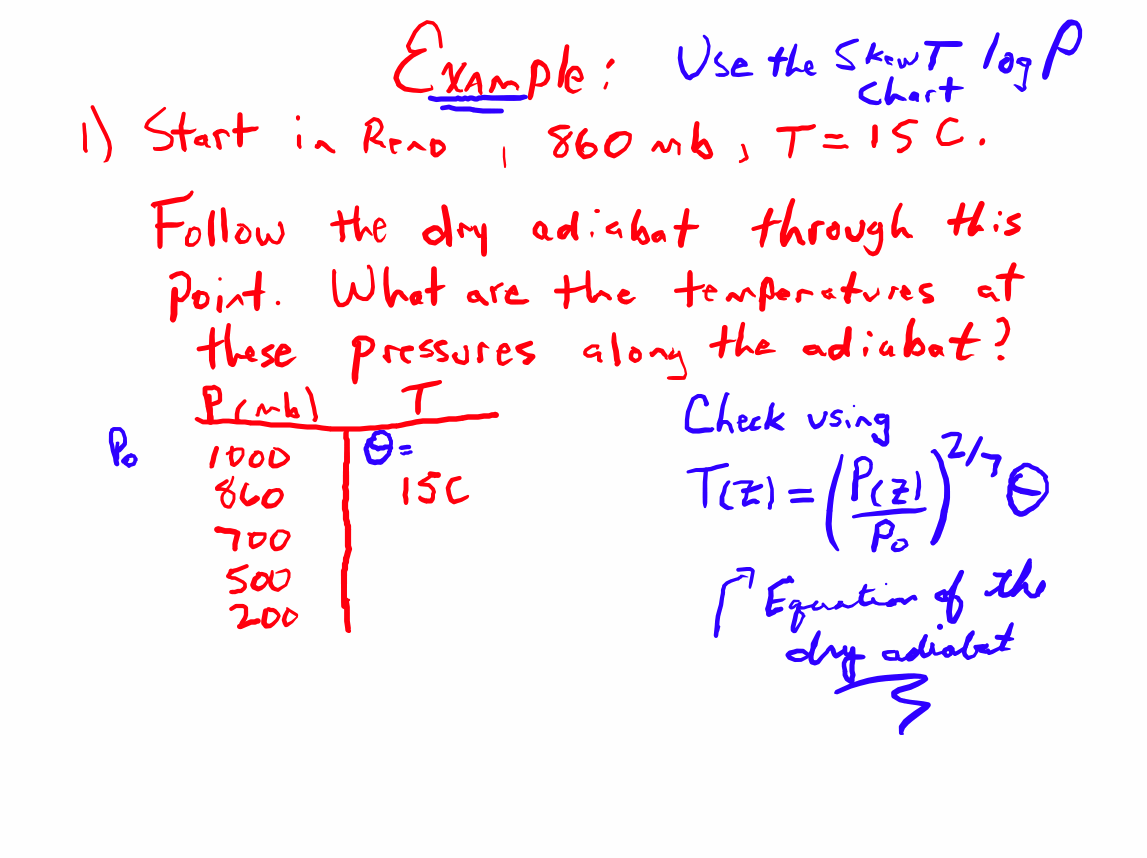 Example: Use the Skew T log P
Chart
1) Start in Reno, 860 mb, T = 15 C.
Follow the dry adiabat through this
point. What are the temperatures at
these pressures along the adiabat?
P(mb) T
P₀ 1000 θ =
860 15C
700
500
200
Check using
T(z) = (P(z)/P₀)^2/7 θ
Equation of the
dry adiabat